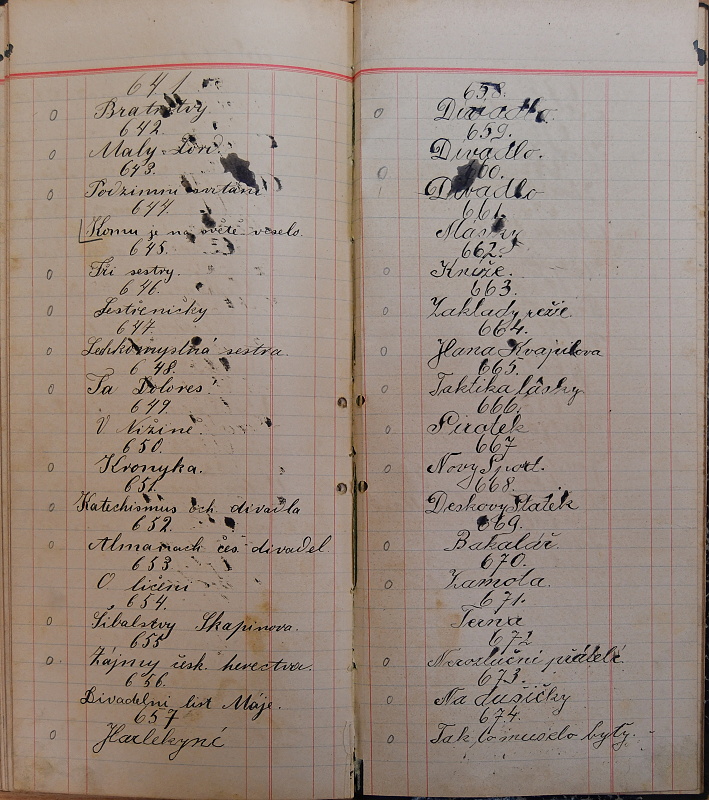 641
Bratrstvy
642.
Maly Lord.
643.
Podzimní svítání
644.
Komu je na světě veselo.
645.
Tři sestry.
646.
Sestřeničky
647.
Lehkomyslná sestra.
648.
Ta Dolores.
649.
V Nížině.
650.
Kronyka.
651.
Katechismus och. divadla
652.
Almanach čes. divadel.
653
O líčení
654.
Šibalstvy Skapinova.
655
Zájmy česk. herectva.
656.
Divadelní list Máje.
657
Harlekyné
658.
Divadlo.
659.
Divadlo.
660.
Divadlo
661.
Masky
662.
Kníže.
663.
Zaklady reže
664.
Hana Kvapilova
665.
Taktika lásky
666.
Pirátek
667
Nový Sport.
668.
Deskovy Statek
669.
Bakalář.
670.
Zamota.
671.
Terna
672
Nerozluční přátelé.
673.
Na dušičky
674.
Tak to muselo byty.